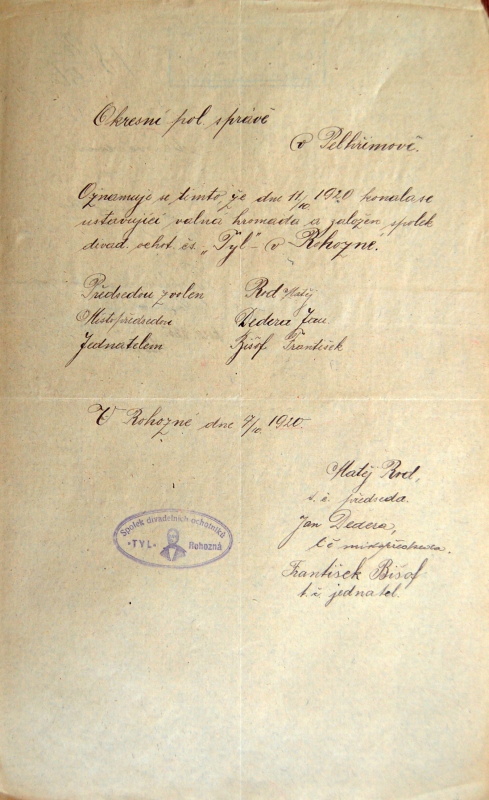 Okresní pol. správě
v Pelhřimově.
Oznamuje se tímto, že dne 11/IV 1920 konala se
ustavující valná hromada a založen spolek
divad. ochot. čs. „Tyl“ v Rohozné.
Předsedou zvolen Rod Matěj
Místopředsedou Dedera Jan
Jednatelem Bišof František
V Rohozné dne 1920.
Matěj Rod,
t. č. předseda.
Jan Dedera,
t. č. místopředseda.
František Bišof
t. č. jednatel.
Spolek divadelních ochotníků
"TYL" Rohozná